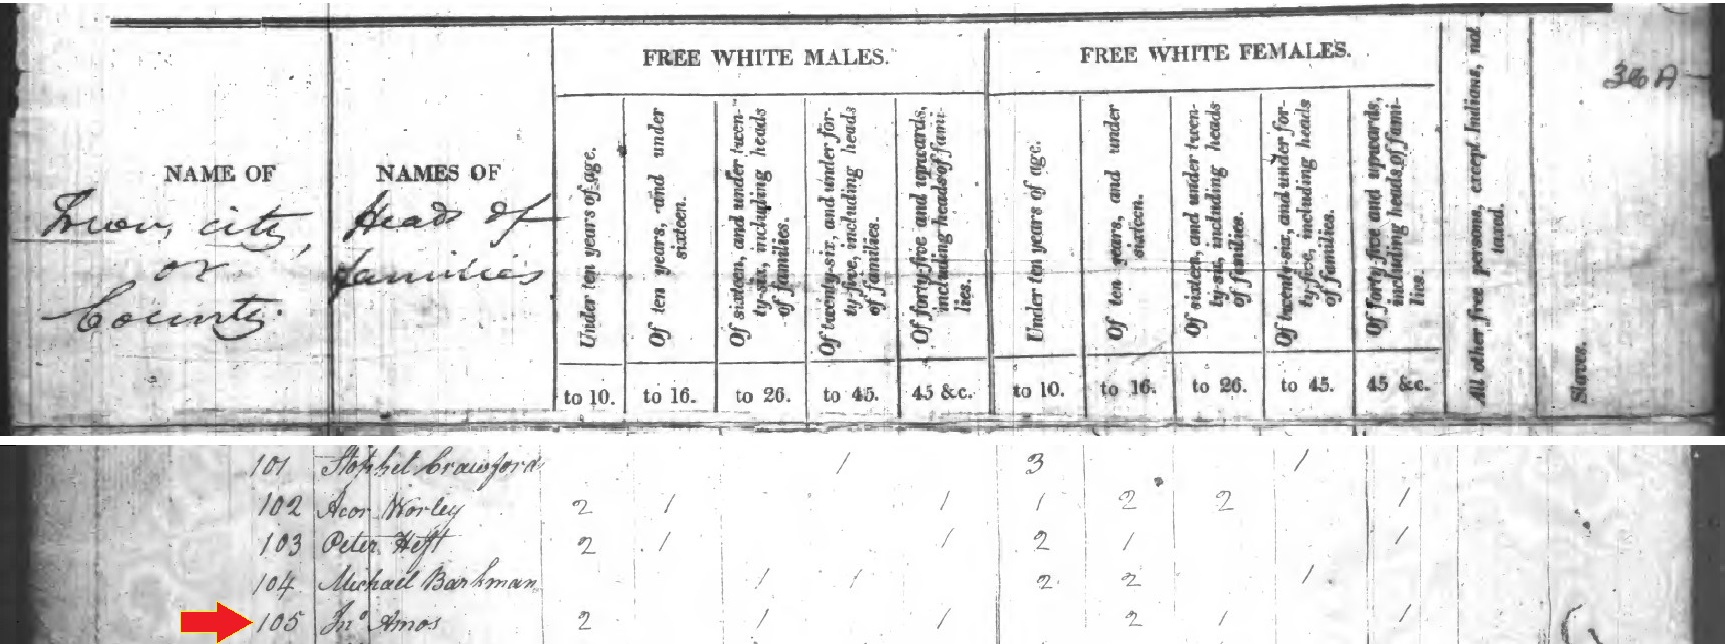 FREE WHITE MALES. FREE WHITE FEMALES.
36A
NAME OF NAMES OF
Town, city, Heads of
or families
County.
Under ten years of age.
Of ten years, and under
sixteen.
Of sixteen, and under twen-
ty-six, including heads
of families.
Of twenty-six, and under for-
ty-five, including heads
of families.
Of forty-five and upwards,
including heads of fami-
lies.
Under ten years of age.
Of ten years, and under
sixteen.
Of sixteen, and under twen-
ty-six, including heads
of families.
Of twenty-six, and under for-
ty-five, including heads
of families.
Of forty-five and upwards,
including heads of fami-
lies.
All other free persons, except Indians, not
taxed.
Slaves.
to 10. to 16. to 26. to 45. 45 &c. to 10. to 16. to 26. to 45. 45 &c.
101 Stophel Crawford 1 3 1
102 Acor Worley 2 1 1 1 2 2 1
103 Peter Heft 2 1 1 2 1 1
104 Michael Barkman 1 1 2 2 1
105 Jno Amos 2 1 1 2 1 1